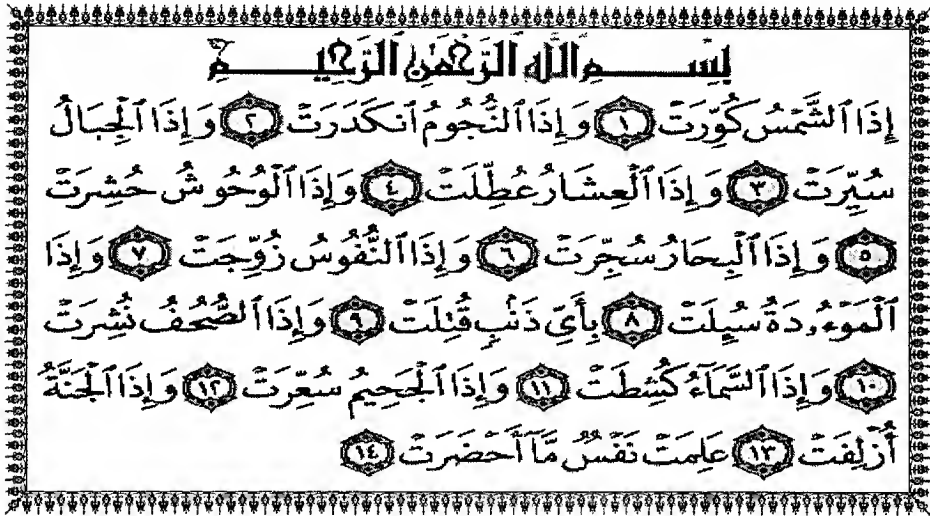 بِسْمِ ٱللَّهِ ٱلرَّحْمَٰنِ ٱلرَّحِيمِ
إِذَا ٱلشَّمْسُ كُوِّرَتْ ١ وَإِذَا ٱلنُّجُومُ ٱنكَدَرَتْ ٢ وَإِذَا ٱلْجِبَالُ
سُيِّرَتْ ٣ وَإِذَا ٱلْعِشَارُ عُطِّلَتْ ٤ وَإِذَا ٱلْوُحُوشُ حُشِرَتْ
٥ وَإِذَا ٱلْبِحَارُ سُجِّرَتْ ٦ وَإِذَا ٱلنُّفُوسُ زُوِّجَتْ ٧ وَإِذَا
ٱلْمَوْءُۥدَةُ سُئِلَتْ ٨ بِأَىِّ ذَنۢبٍ قُتِلَتْ ٩ وَإِذَا ٱلصُّحُفُ نُشِرَتْ
١٠ وَإِذَا ٱلسَّمَآءُ كُشِطَتْ ١١ وَإِذَا ٱلْجَحِيمُ سُعِّرَتْ ١٢ وَإِذَا ٱلْجَنَّةُ
أُزْلِفَتْ ١٣ عَلِمَتْ نَفْسٌ مَّآ أَحْضَرَتْ ١٤